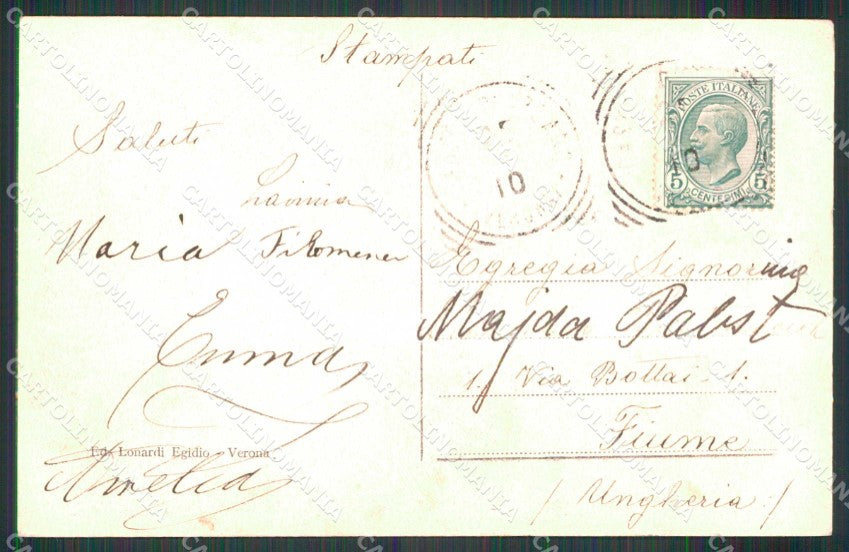 Stampati
POSTE ITALIANE
5 CENTESIMI 5
10
10
Saluti
Lavinia
Maria Filomena
Emma
Amelia
Ed. Lonardi Egidio - Verona
Egregia Signorina
Majda Pabst
1. Via Bottai 1.
Fiume
/ Ungheria /
CARTOLINOMANIA